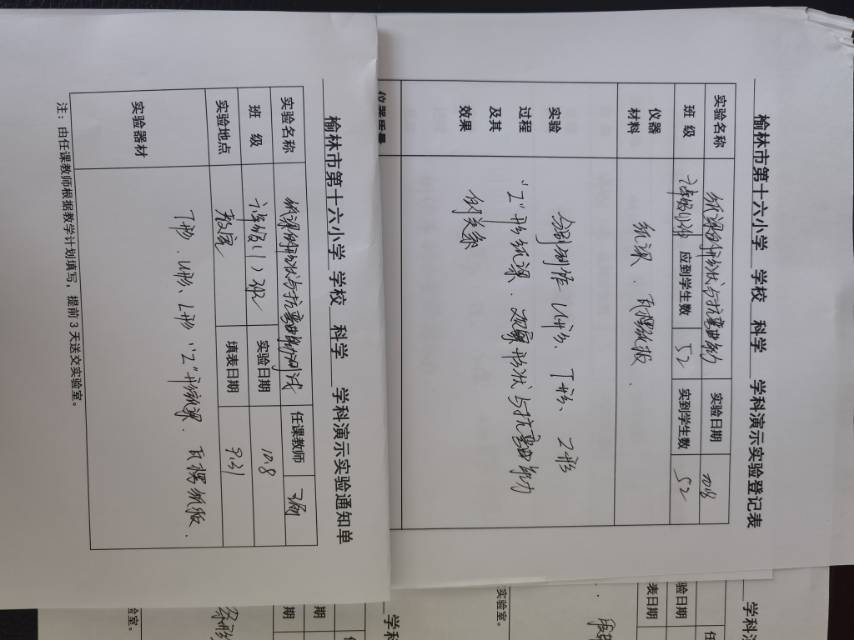 榆林市第十六小学 学校 科学 学科演示实验通知单
实验名称 纸梁的形状与抗弯曲能力测试 任课教师
班 级 六年级(1)班 实验日期 10.8
实验地点 教室 填表日期 9.31
实验器材 T形、U形、L形、"工"形纸梁、瓦楞纸板.
注：由任课教师根据教学计划填写，提前3天送交实验室。
榆林市第十六小学 学校 科学 学科演示实验登记表
实验名称 纸梁的形状与抗弯曲能力 实验日期 10.8
班 级 应到学生数 52 实到学生数 52
仪器
材料 纸梁、瓦楞纸板.
实验
过程
及其
效果
分别制作U形、T形、工形
"工"形纸梁.观察形状与抗弯曲能力
的关系
仪器质量
学科
学科演
实验室。
实验室。
验日期
表日期
期
期